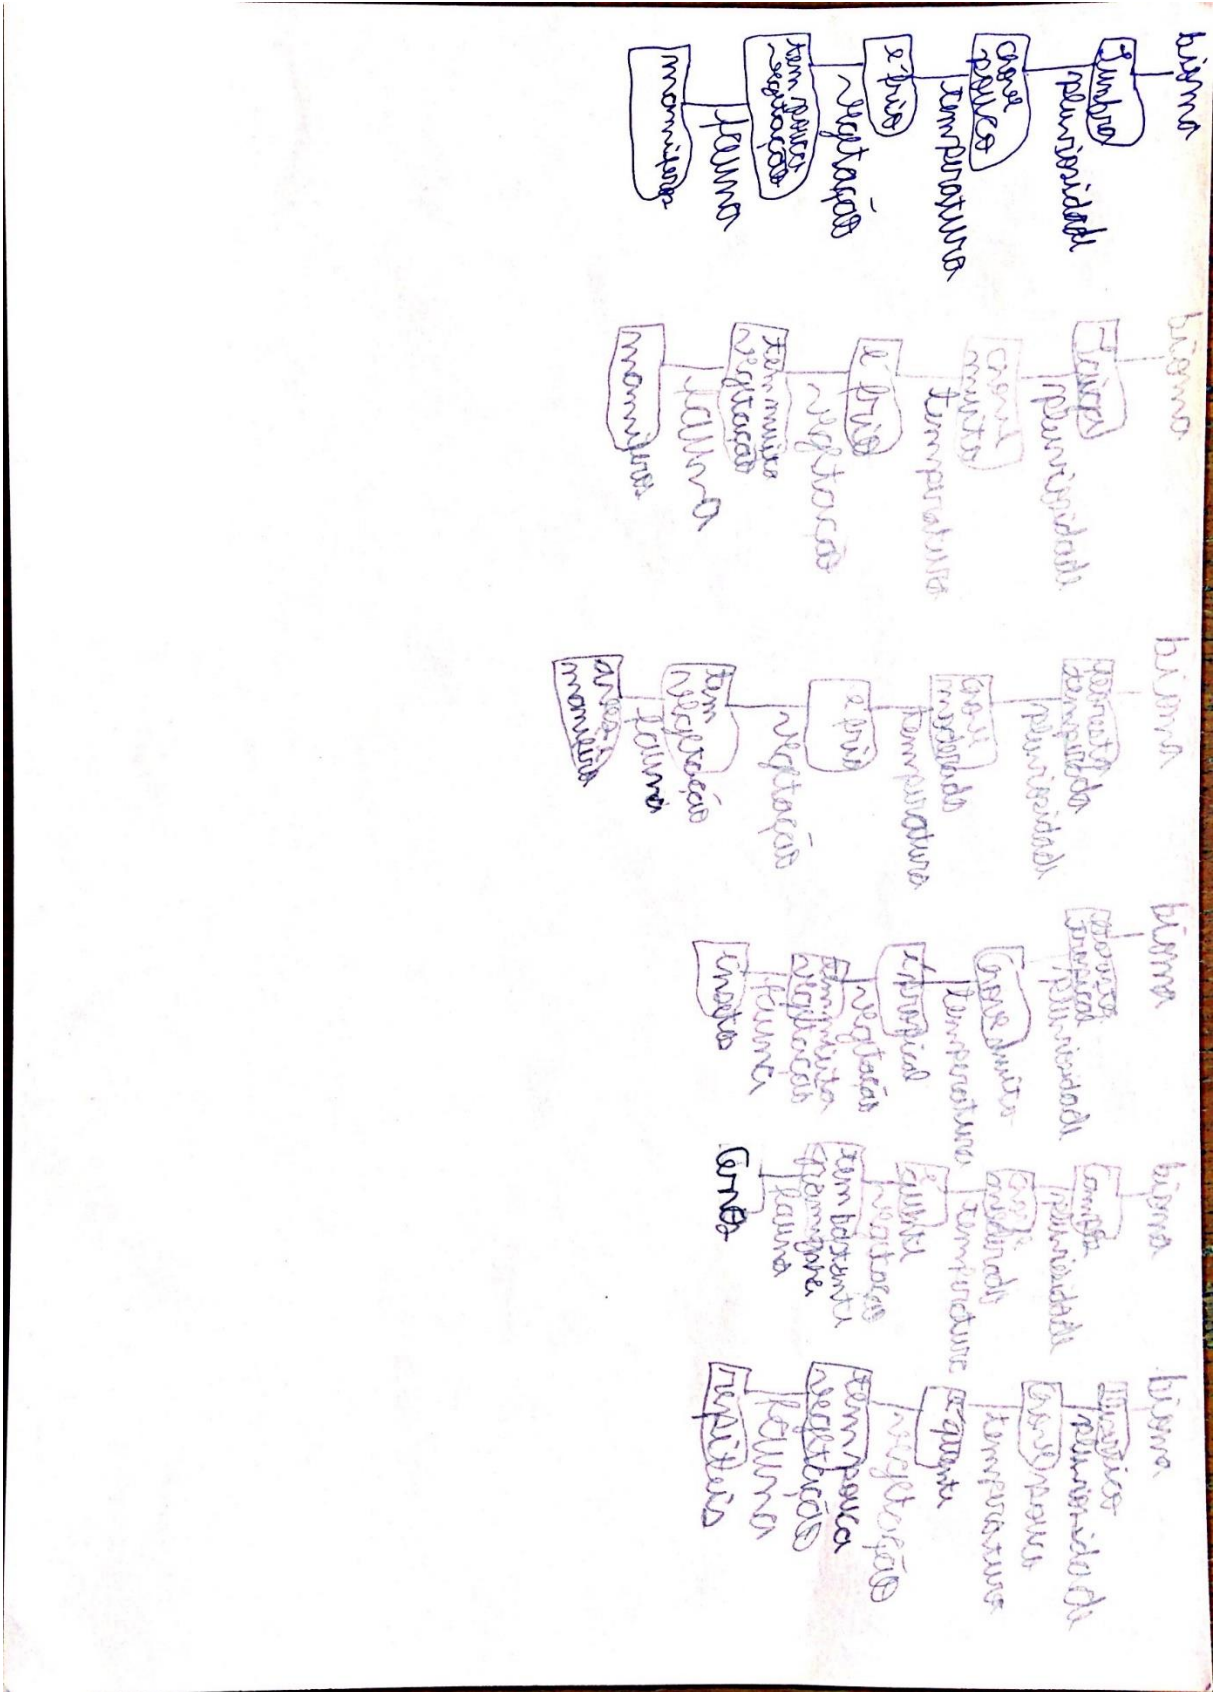 bioma
Tundra
pluviosidade
chove
pouco
temperatura
é frio
vegetação
tem pouca
vegetação
fauna
mamiferos
bioma
Taiga
pluviosidade
chove
muito
temperatura
é frio
vegetação
tem muita
vegetação
fauna
mamiferos
bioma
floresta
temperada
pluviosidade
chove
moderado
temperatura
é frio
vegetação
tem
vegetação
fauna
aves e
mamifero
bioma
floresta
tropical
pluviosidade
Chove muito
temperatura
é tropical
vegetação
tem muita
vegetação
fauna
insetos
bioma
Campos
pluviosidade
chove
moderado
temperatura
é
quente
vegetação
tem bastante
fauna
bioma
pluviosidade
chove pouco
temperatura
é quente
vegetação
tem pouca
vegetação
fauna
repiteis